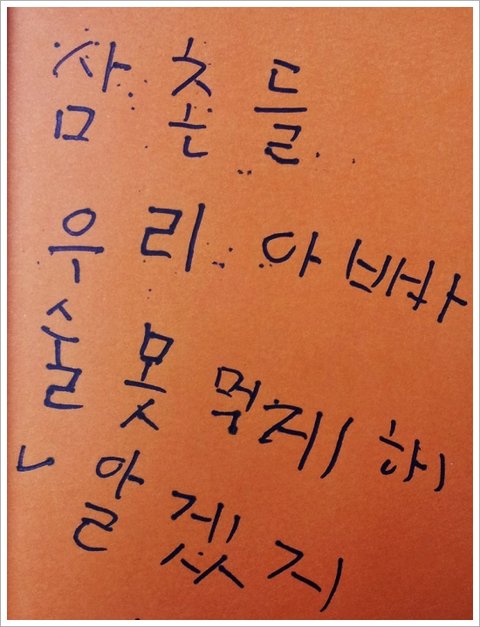 삼촌들
우리 아빠
술 못 먹제 해
알겠지